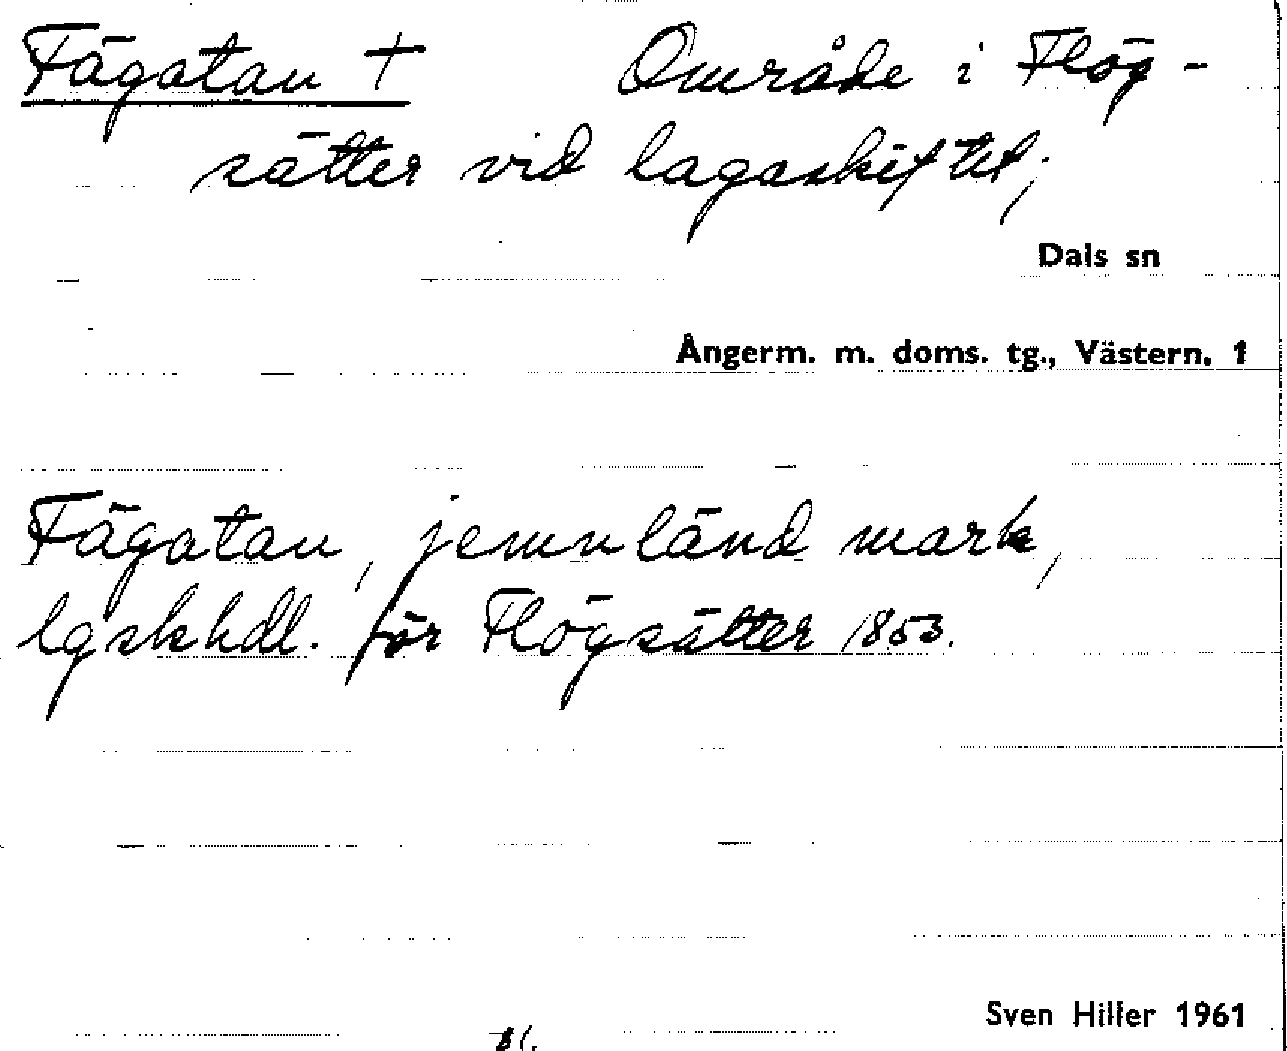 Fägatan †
Område i Flög-
sätter vid lagaskiftet;
Dals sn
Ångerm. m. doms. tg., Västern. 1
Fägatan, jemnländ mark,
lgskhdl. för Flögsätter 1853.
Sven Hiller 1961